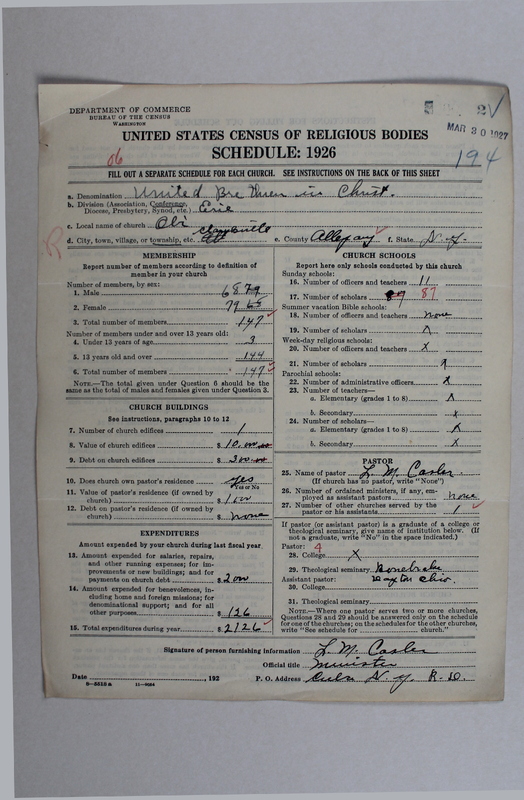 DEPARTMENT OF COMMERCE
BUREAU OF THE CENSUS
WASHINGTON
2
MAR 30 1927
UNITED STATES CENSUS OF RELIGIOUS BODIES
SCHEDULE: 1926
194
FILL OUT A SEPARATE SCHEDULE FOR EACH CHURCH. SEE INSTRUCTIONS ON THE BACK OF THIS SHEET
a. Denomination United Brethren in Christ.
b. Division (Association, Conference, Diocese, Presbytery, Synod, etc.) Erie
c. Local name of church Obi
d. City, town, village, or township, etc. Clarksville
e. County Allegany f. State N-Y-
MEMBERSHIP
Report number of members according to definition of
member in your church
Number of members, by sex:
1. Male 68 79
2. Female 79 68
3. Total number of members 147
Number of members under and over 13 years old:
4. Under 13 years of age 3
5. 13 years old and over 144
6. Total number of members 147
NOTE.—The total given under Question 6 should be the
same as the total of males and females given under Question 3.
CHURCH BUILDINGS
See instructions, paragraphs 10 to 12
7. Number of church edifices 1
8. Value of church edifices $ 10,000.00
9. Debt on church edifices $ 300.00
10. Does church own pastor's residence yes
Yes or No
11. Value of pastor's residence (if owned by
church) $
12. Debt on pastor's residence (if owned by
church) $ none
EXPENDITURES
Amount expended by your church during last fiscal year
13. Amount expended for salaries, repairs,
and other running expenses; for im-
provements or new buildings; and for
payments on church debt $ 2000
14. Amount expended for benevolences, in-
cluding home and foreign missions; for
denominational support; and for all
other purposes $ 126
15. Total expenditures during year $ 2126
CHURCH SCHOOLS
Report here only schools conducted by this church
Sunday schools:
16. Number of officers and teachers 11
17. Number of scholars 87
Summer vacation Bible schools:
18. Number of officers and teachers none
19. Number of scholars
Week-day religious schools:
20. Number of officers and teachers x
21. Number of scholars
Parochial schools:
22. Number of administrative officers x
23. Number of teachers—
a. Elementary (grades 1 to 8)
b. Secondary x
24. Number of scholars—
a. Elementary (grades 1 to 8)
b. Secondary X
PASTOR
25. Name of pastor L. M. Casler
(If church has no pastor, write "None")
26. Number of ordained ministers, if any, em-
ployed as assistant pastors none
27. Number of other churches served by the
pastor or his assistants 1
If pastor (or assistant pastor) is a graduate of a college or
theological seminary, give name of institution below. (If
not a graduate, write "No" in the space indicated.)
Pastor:
28. College X
29. Theological seminary Bonebrake
Assistant pastor: Dayton Ohio.
30. College
31. Theological seminary
NOTE.—Where one pastor serves two or more churches,
Questions 28 and 29 should be answered only on the schedule
for one of the churches; on the schedules for the other churches,
write "See schedule for church."
Signature of person furnishing information L. M. Casler
Official title minister
Date , 192 P. O. Address Cuba N. Y. R. D.
8-5515a 11-9024